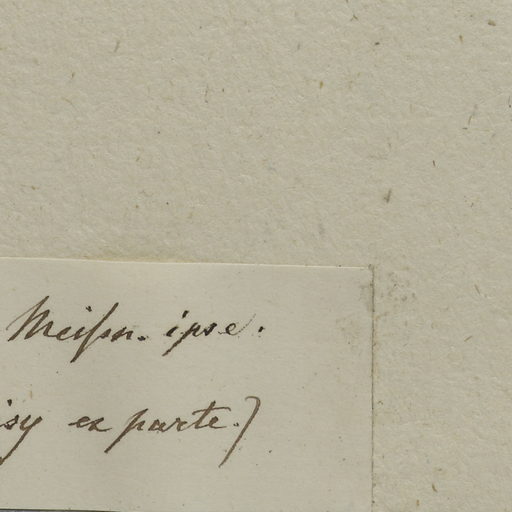 Meiſsn. ipse.
isy ex parte.)